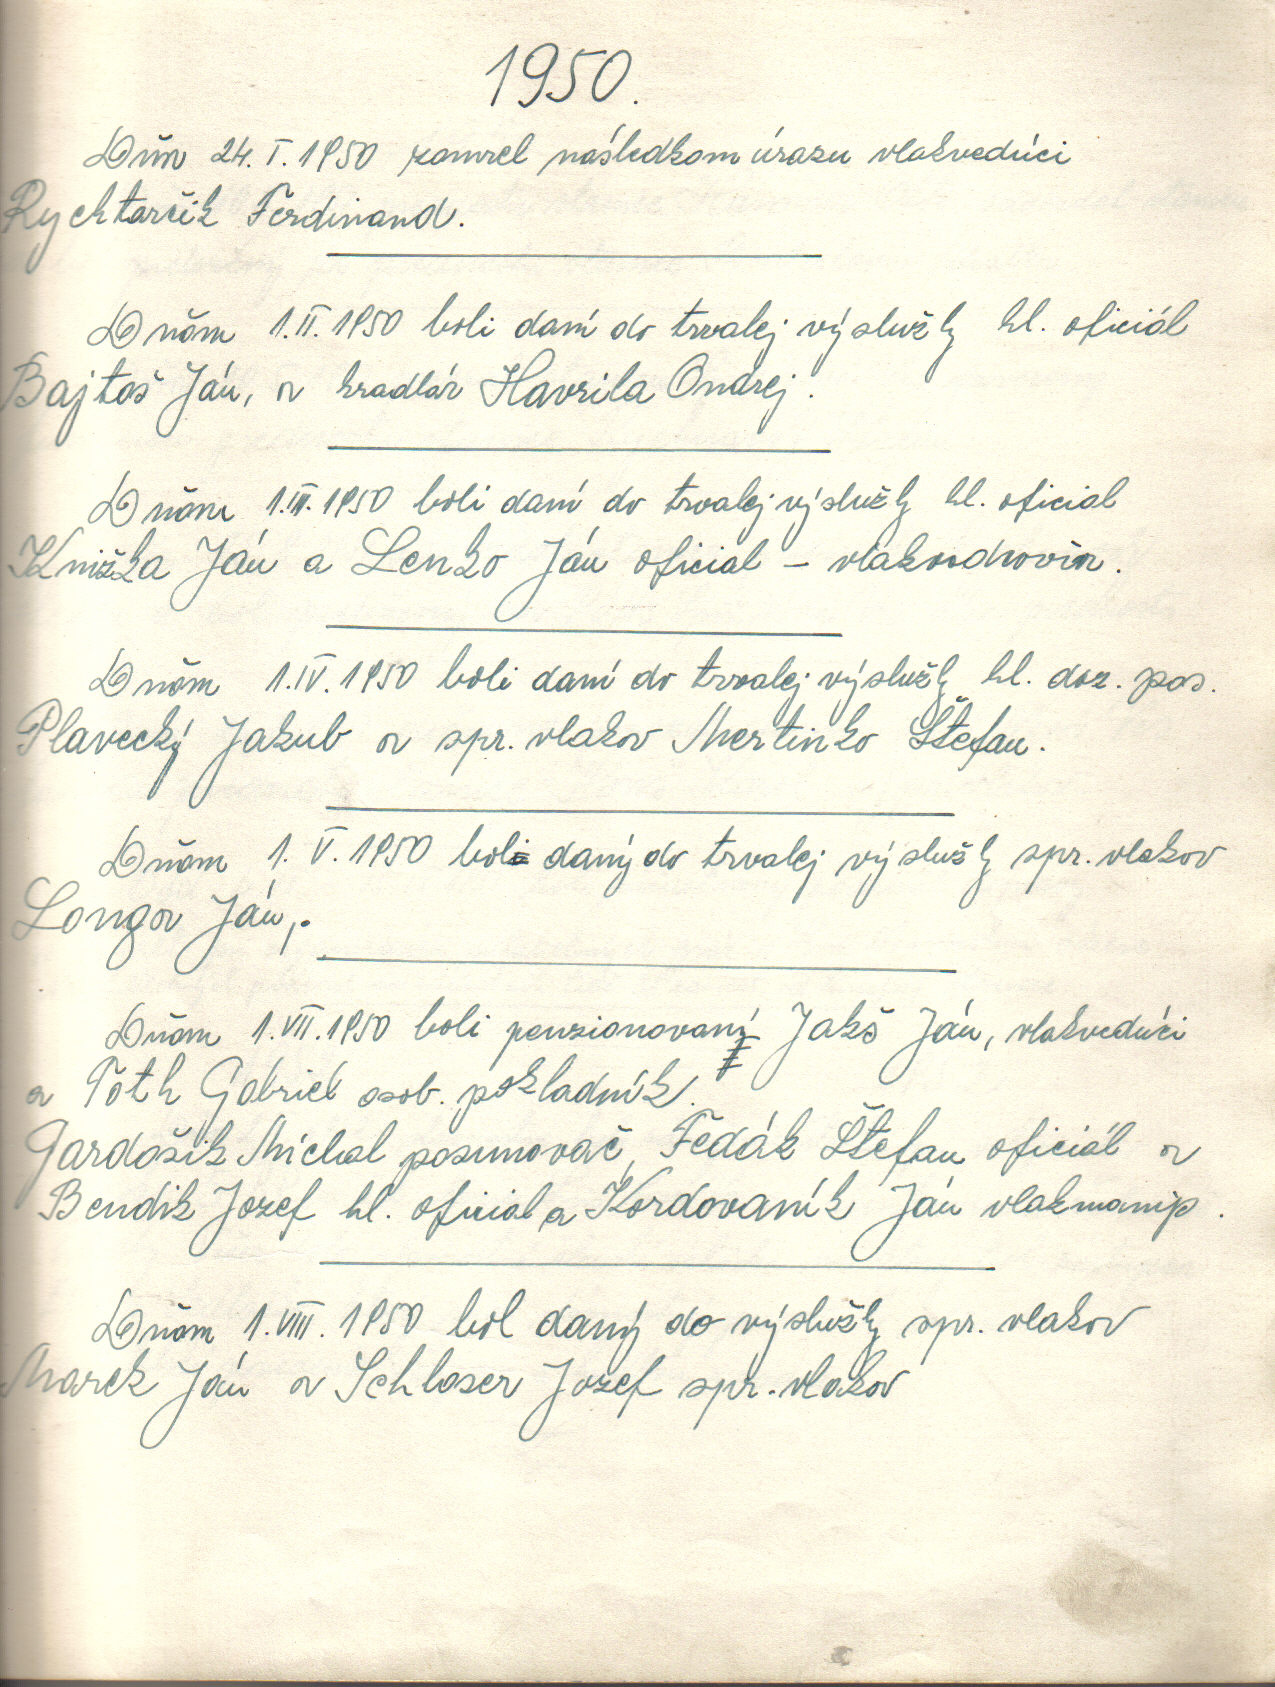 1950.
Dňa 24. I. 1950 zomrel následkom úrazu vlakvedúci
Rychtarčik Ferdinand.
Dňom 1.II.1950 boli daní do trvalej výslužby hl. oficiál
Bajtoš Ján, a hradlár Havrila Ondrej.
Dňom 1.III.1950 boli daní do trvalej výslužby hl. oficial
Knižka Ján a Lenko Ján oficial –
Dňom 1.IV.1950 boli daní do trvalej výslužby hl. doz. pos.
Plavecký Jakub a spr. vlakov Mertinko Štefan.
Dňom 1. V. 1950 bol daný do trvalej výslužby spr. vlakov
Longa Ján,.
Dňom 1.VII.1950 boli penzionovaní Jakš Ján, vlakvedúci
a Tóth Gabriel osob. pokladník.
Gardošik Michal posunovač, Fedák Štefan oficiál a
Bendik Jozef hl. oficial a Kordovaník Ján vlakmanip.
Dňom 1.VIII.1950 bol daný do výslužby spr. vlakov
Marek Ján a Schloser Jozef spr. vlakov